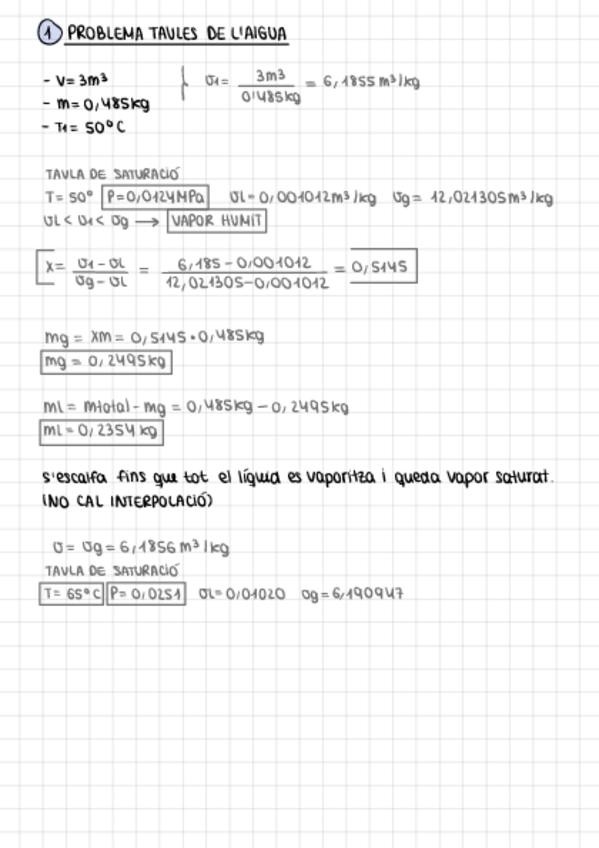 1 PROBLEMA TAULES DE L'AIGUA
- V= 3m³
- m= 0,485kg
- T1= 50°C
υ1= 3m³ / 0'485kg = 6,1855 m³/kg
TAULA DE SATURACIÓ
T= 50° P=0,0124MPa υL= 0,001012m³/kg υg= 12,021305m³/kg
υL < υ1 < υg → VAPOR HUMIT
X= υ1 - υL / υg - υL = 6,185 - 0,001012 / 12,021305-0,001012 = 0,5145
mg = Xm = 0,5145 · 0,485kg
mg = 0,2495kg
mL = mtotal - mg = 0,485kg - 0,2495kg
mL = 0,2354 kg
s'escalfa fins que tot el líquid es vaporitza i queda vapor saturat.
(NO CAL INTERPOLACIÓ)
υ= υg = 6,1856 m³/kg
TAULA DE SATURACIÓ
T= 65°C P= 0,0251 υL= 0,01020 υg= 6,190947